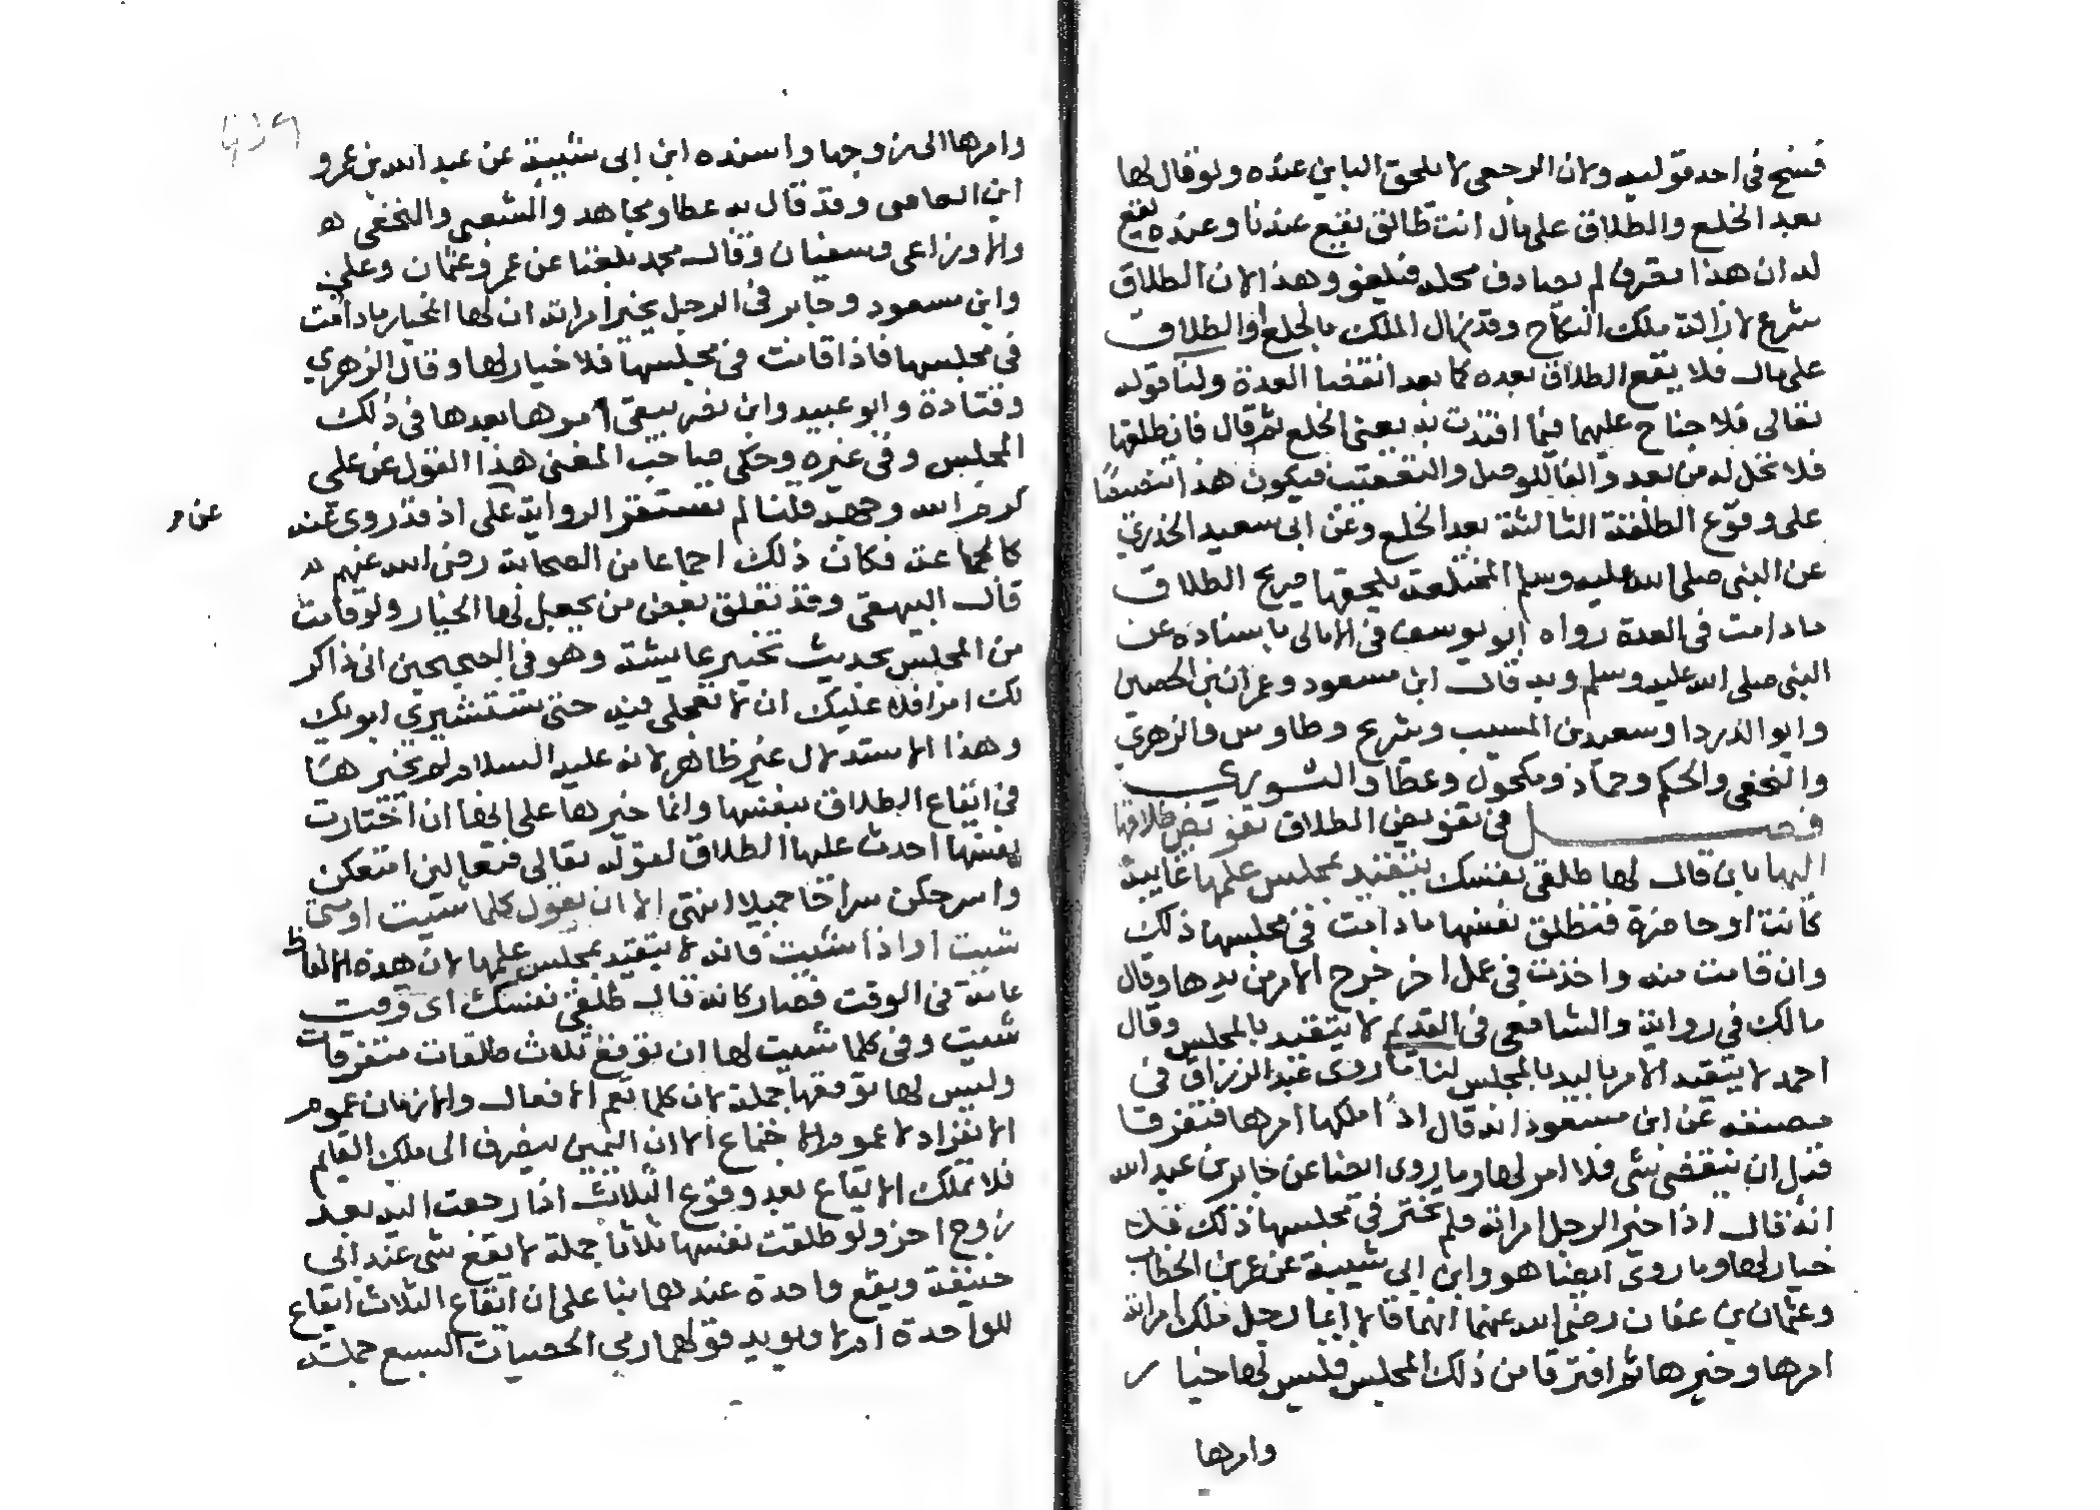 فسخ في احد قوليه ولان الرجعي لا يلحق الباين عنده ولو قال لها
بعد الخلع والطلاق على مال انت طالق يقع عندنا وعنده لا يقع
له ان هذا تصرف لم يصادف محله فيلغو وهذا لان الطلاق
شرع لازالة ملك النكاح وقد زال الملك بالخلع او الطلاق
على مال فلا يقع الطلاق بعده كما بعد انقضا العدة ولنا قوله
تعالى فلا جناح عليهما فيما افتدت به يعني الخلع ثم قال فان طلقها
فلا تحل له من بعد والفا للوصل والتعقيب فيكون هذا تنصيصا
على وقوع الطلقة الثالثة بعد الخلع وعن ابي سعيد الخدري
عن النبي صلى الله عليه وسلم المختلعة يلحقها صريح الطلاق
ما دامت في العدة رواه ابو يوسف في الامالي باسناده عن
النبي صلى الله عليه وسلم وبه قال ابن مسعود وعمران بن الحصين
وابو الدردا وسعيد بن المسيب وشريح وطاوس والزهري
والنخعي والحكم وحماد ومكحول وعطا والثوري
فصل في تفويض الطلاق تفويض طلاقها
اليها بان قال لها طلقي نفسك يتقيد بمجلس علمها غايبة
كانت او حاضرة فتطلق نفسها ما دامت في مجلسها ذلك
وان قامت منه واخذت في عمل اخر خرج الامر من يدها وقال
مالك في رواية والشافعي في القديم لا يتقيد بالمجلس وقال
احمد لا يتقيد الامر باليد بالمجلس لنا ما روى عبد الرزاق في
مصنفه عن ابن مسعود انه قال اذا ملكها امرها فتفرقا
قبل ان ينقضي شي فلا امر لها وما روى ايضا عن جابر بن عبد الله
انه قال اذا خير الرجل امراته فلم تختر في مجلسها ذلك فلا
خيار لها وما روى ايضا هو وابن ابي شيبة عن عمر بن الخطاب
وعثمان بن عفان رضي الله عنهما انهما قالا ايما رجل ملك امراته
امرها وخيرها ثم افترقا من ذلك المجلس فليس لها خيار
وامرها
وامرها الى زوجها واسنده ابن ابي شيبة عن عبد الله بن عمرو
ابن العاص وقد قال به عطا ومجاهد والشعبي والنخعي
والاوزاعي وسفيان وقال محمد بلغنا عن عمر وعثمان وعلي
وابن مسعود وجابر في الرجل يخير امراته ان لها الخيار ما دامت
في مجلسها فاذا قامت في مجلسها فلا خيار لها وقال الزهري
وقتادة وابو عبيد وابن نصر يبقى امرها بيدها في ذلك
المجلس وفي غيره وحكى صاحب المغني هذا القول عن علي
كرم الله وجهه قلنا لم تستقر الرواية على اذ قد روي عنه
عن م
كالجماعة فكان ذلك اجماعا من الصحابة رضي الله عنهم
قال البيهقي وقد تعلق بعض من يجعل لها الخيار ولو قامت
من المجلس بحديث تخيير عايشة وهو في الصحيحين اني ذاكر
لك امرا فلا عليك ان لا تعجلي فيه حتى تستشيري ابويك
وهذا الاستدلال غير ظاهر لانه عليه السلام لم يخيرها
في ايقاع الطلاق بنفسها وانما خيرها على انها ان اختارت
نفسها احدث عليها الطلاق لقوله تعالى فتعالين امتعكن
واسرحكن سراحا جميلا انتهى الا ان يقول كلما شيت او متى
شيت او اذا شيت فانه لا يتقيد بمجلس علمها لان هذه الالفاظ
عامة في الوقت فصار كانه قال طلقي نفسك اي وقت
شيت وفي كلما شيت لها ان توقع ثلاث طلقات متفرقات
وليس لها توقعها جملة لان كلما تعم الافعال والازمان عموم
الانفراد لا عموم الاجتماع الا ان اليمين ينصرف الى ملك القايم
فلا تملك الايقاع بعد وقوع الثلاث اذا رجعت اليه بعد
زوج اخر ولو طلقت نفسها ثلاثا جملة لا يقع شي عند ابي
حنيفة ويقع واحدة عندهما بنا على ان ايقاع الثلاث ايقاع
للواحدة ام لا ويويد قولهما رمي الحصيات السبع جملة